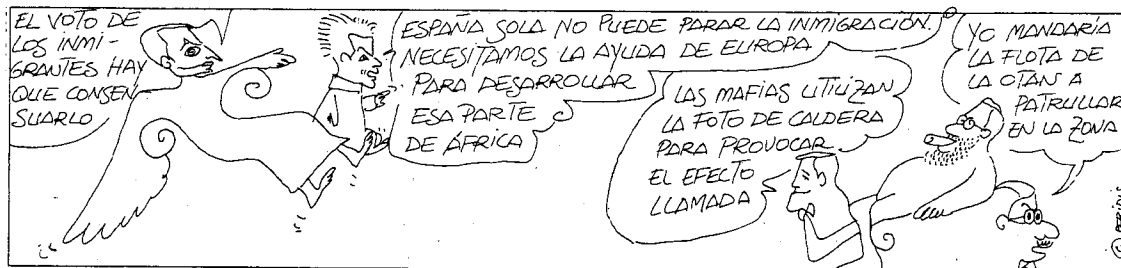 EL VOTO DE
LOS INMI-
GRANTES HAY
QUE CONSEN
SUARLO
ESPAÑA SOLA NO PUEDE PARAR LA INMIGRACIÓN.
NECESITAMOS LA AYUDA DE EUROPA
PARA DESARROLLAR
ESA PARTE
DE ÁFRICA
LAS MAFIAS UTILIZAN
LA FOTO DE CALDERA
PARA PROVOCAR
EL EFECTO
LLAMADA
YO MANDARÍA
LA FLOTA DE
LA OTAN A
PATRULLAR
EN LA ZONA
© PERIDIS